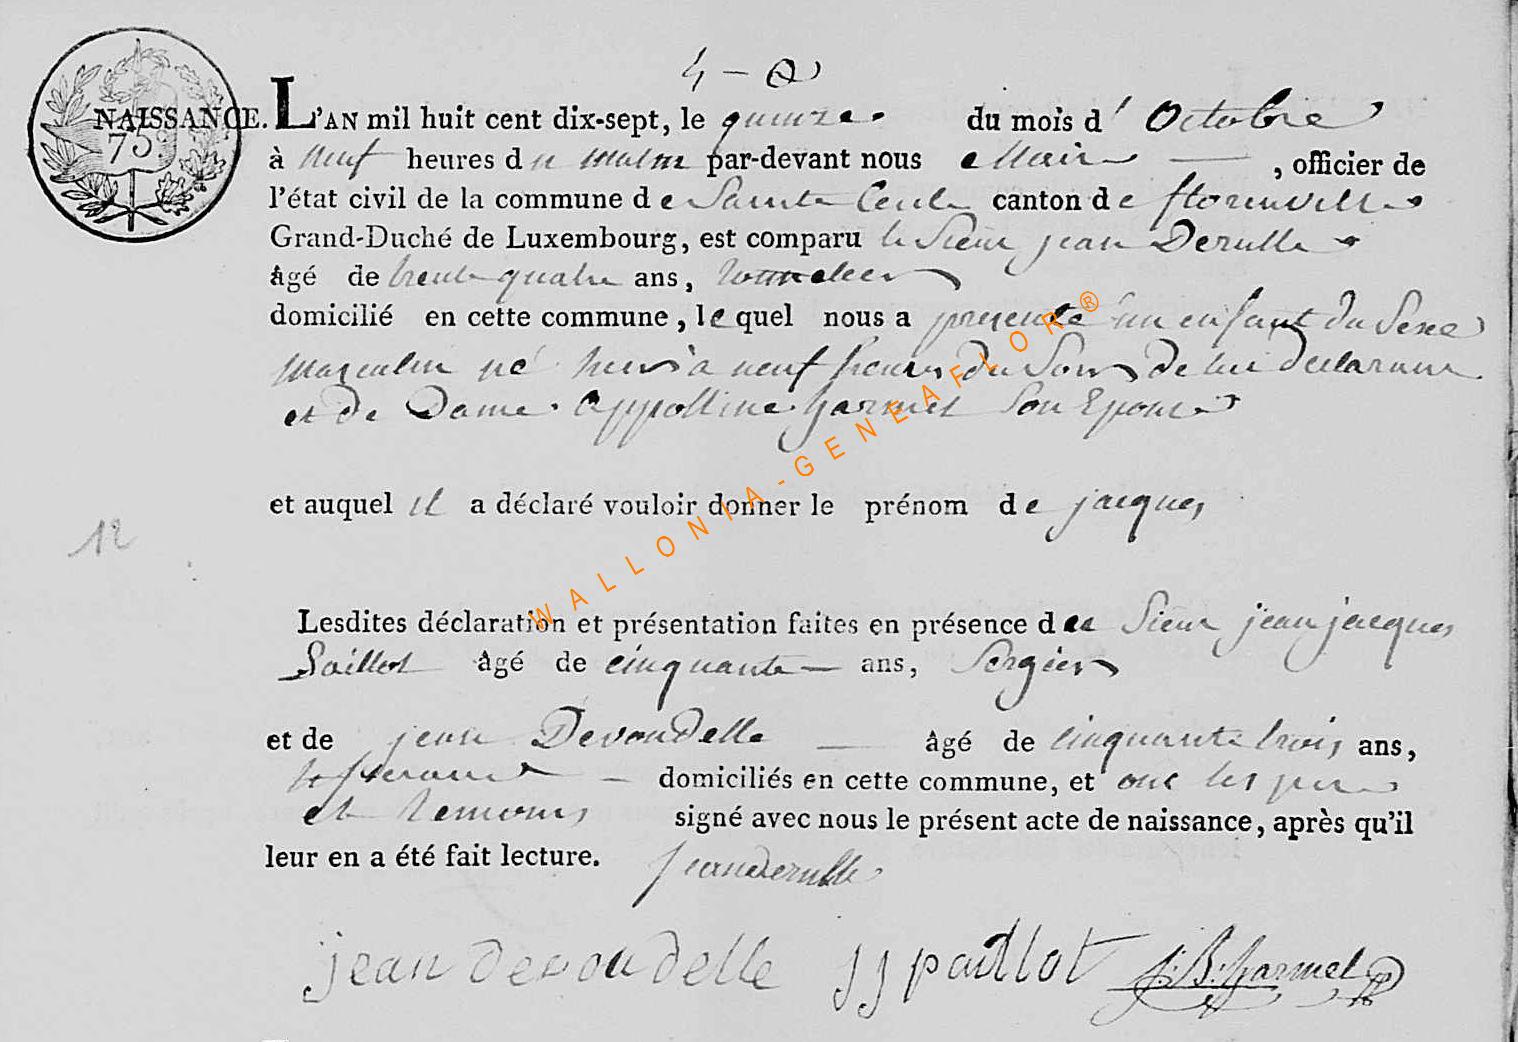 NAISSANCE.
75
L'AN mil huit cent dix-sept, le quinze du mois d'Octobre
à neuf heures du matin par-devant nous Maire, officier de
l'état civil de la commune de Sainte Cecile canton de florenville
Grand-Duché de Luxembourg, est comparu le Sieur jean Derulle
âgé de trente quatre ans,
domicilié en cette commune, lequel nous a présenté un enfant du Sexe
masculin né hier à neuf heures du Soir de lui declarant
et de Dame Appolline harmel Son Epouse
et auquel il a déclaré vouloir donner le prénom de jacques
12
Lesdites déclaration et présentation faites en présence de Sieur jean jacques
Paillot âgé de cinquante ans, Sergier
et de jean Devoudelle âgé de cinquante trois ans,
domiciliés en cette commune, et ont les pere
et temoins signé avec nous le présent acte de naissance, après qu'il
leur en a été fait lecture. jean derulle
jean devoudelle jj paillot j: B: harmel
WALLONIA-GENEAFLOR®